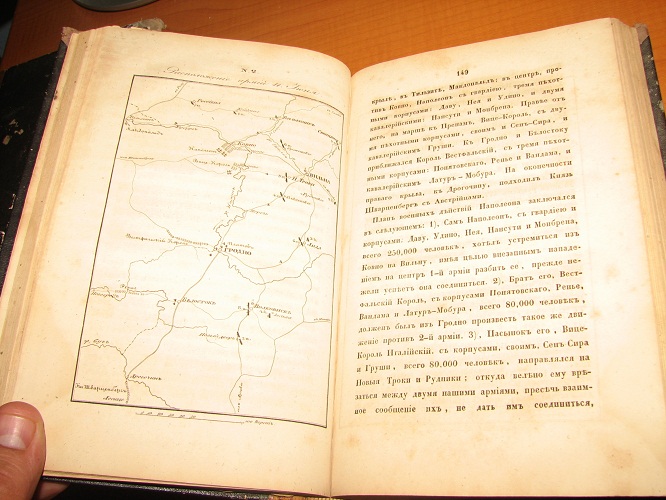 N. 2
Расположеніе армій къ
Вильна
Ковно
Лида
Гродно
Бѣлостокъ
Волковискъ
Дрогочинъ
149
крылѣ, въ Тильзитѣ, Макдональдъ; въ центрѣ, про-
тивъ Ковно, Наполеонъ съ гвардіею, тремя пѣхот-
ными корпусами: Даву, Нея и Удино, и двумя
кавалерійскими: Нансути и Монбрена. Правѣе отъ
него, на маршѣ къ Пренамъ, Вице-Король, съ дву-
мя пѣхотными корпусами, своимъ и Сенъ-Сира, и
кавалерійскимъ Груши. Къ Гродно и Бѣлостоку
приближался Король Вестфальскій, съ тремя пѣхот-
ными корпусами: Понятовскаго, Ренье и Вандама, и
кавалерійскимъ Латуръ-Мобура. На оконечности
праваго крыла, къ Дрогочину, подходилъ Князь
Шварценбергъ съ Австрійцами.
Планъ военныхъ дѣйствій Наполеона заключался
въ слѣдующемъ: 1). Самъ Наполеонъ, съ гвардіею и
корпусами: Даву, Удино, Нея, Нансути и Монбрена,
всего 250,000 человѣкъ, хотѣлъ устремиться изъ
Ковно на Вильну, имѣя цѣлью внезапнымъ нападе-
ніемъ на центръ 1-й арміи разбить ее, прежде не-
жели успѣетъ она соединиться. 2), Братъ его, Вест-
фальскій Король, съ корпусами Понятовскаго, Ренье,
Вандама и Латуръ-Мобура, всего 80,000 человѣкъ,
долженъ былъ изъ Гродно произвесть такое же дви-
женіе противъ 2-й арміи. 3), Пасынокъ его, Вице-
Король Италійскій, съ корпусами, своимъ, Сенъ Сира
и Груши, всего 80,000 человѣкъ, направлялся на
Новыя Троки и Рудники: откуда велѣно ему врѣ-
заться между двумя нашими арміями, пресѣчь взаим-
ное сообщеніе ихъ, не дать имъ соединиться,